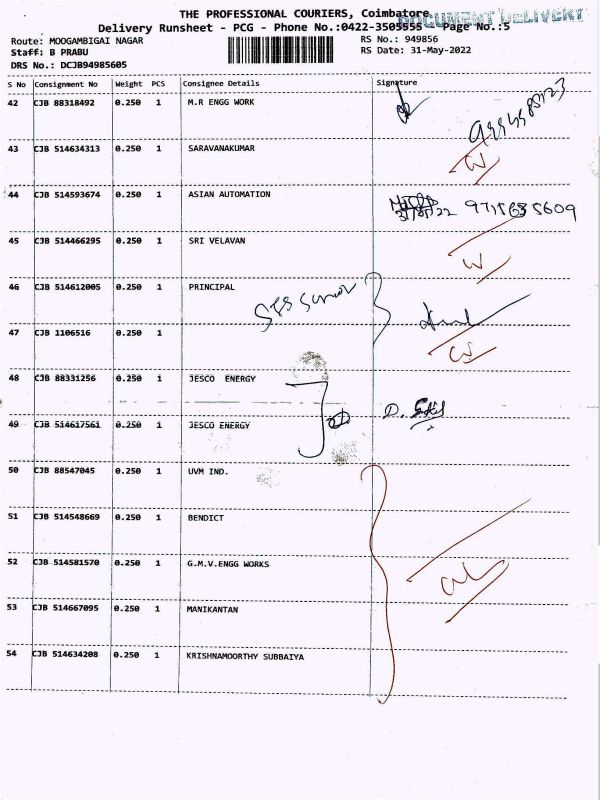 THE PROFESSIONAL COURIERS, Coimbatore
DOCUMENT DELIVERY
Delivery Runsheet - PCG - Phone No.:0422-3505555 Page No.:5
Route: MOOGAMBIGAI NAGAR RS No.: 949856
Staff: B PRABU RS Date: 31-May-2022
DRS No.: DCJB94985605
S No Consignment No Weight PCS Consignee Details Signature
42 CJB 88318492 0.250 1 M.R ENGG WORK
43 CJB 514634313 0.250 1 SARAVANAKUMAR
44 CJB 514593674 0.250 1 ASIAN AUTOMATION
45 CJB 514466295 0.250 1 SRI VELAVAN
46 CJB 514612005 0.250 1 PRINCIPAL
47 CJB 1106516 0.250 1
48 CJB 88331256 0.250 1 JESCO ENERGY
49 CJB 514617561 0.250 1 JESCO ENERGY
50 CJB 88547045 0.250 1 UVM IND.
51 CJB 514548669 0.250 1 BENDICT
52 CJB 514581570 0.250 1 G.M.V.ENGG WORKS
53 CJB 514667095 0.250 1 MANIKANTAN
54 CJB 514634208 0.250 1 KRISHNAMOORTHY SUBBAIYA